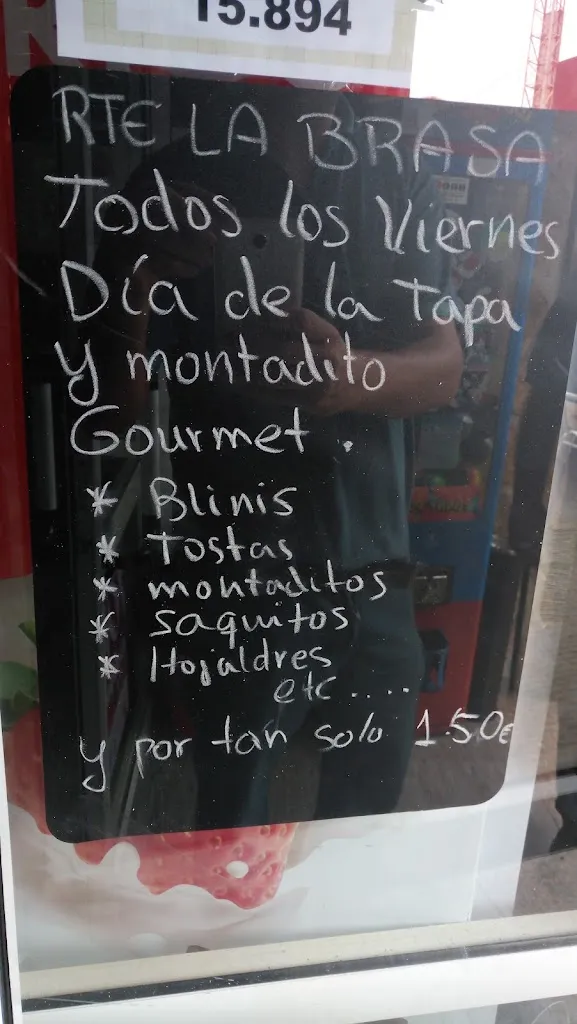 15.894
RTE LA BRASA
Todos los Viernes
Día de la Tapa
y montadito
Gourmet.
* Blinis
* Tostas
* montaditos
* saquitos
* Hojaldres
etc....
y por tan solo 1.50€